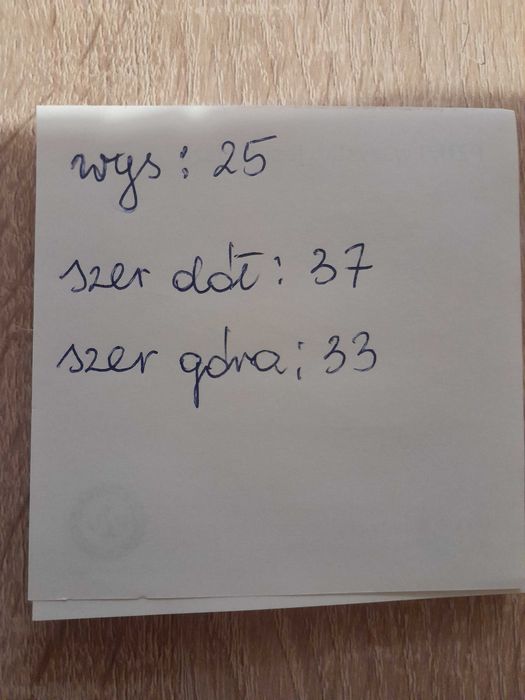 wys: 25
szer dół: 37
szer góra: 33